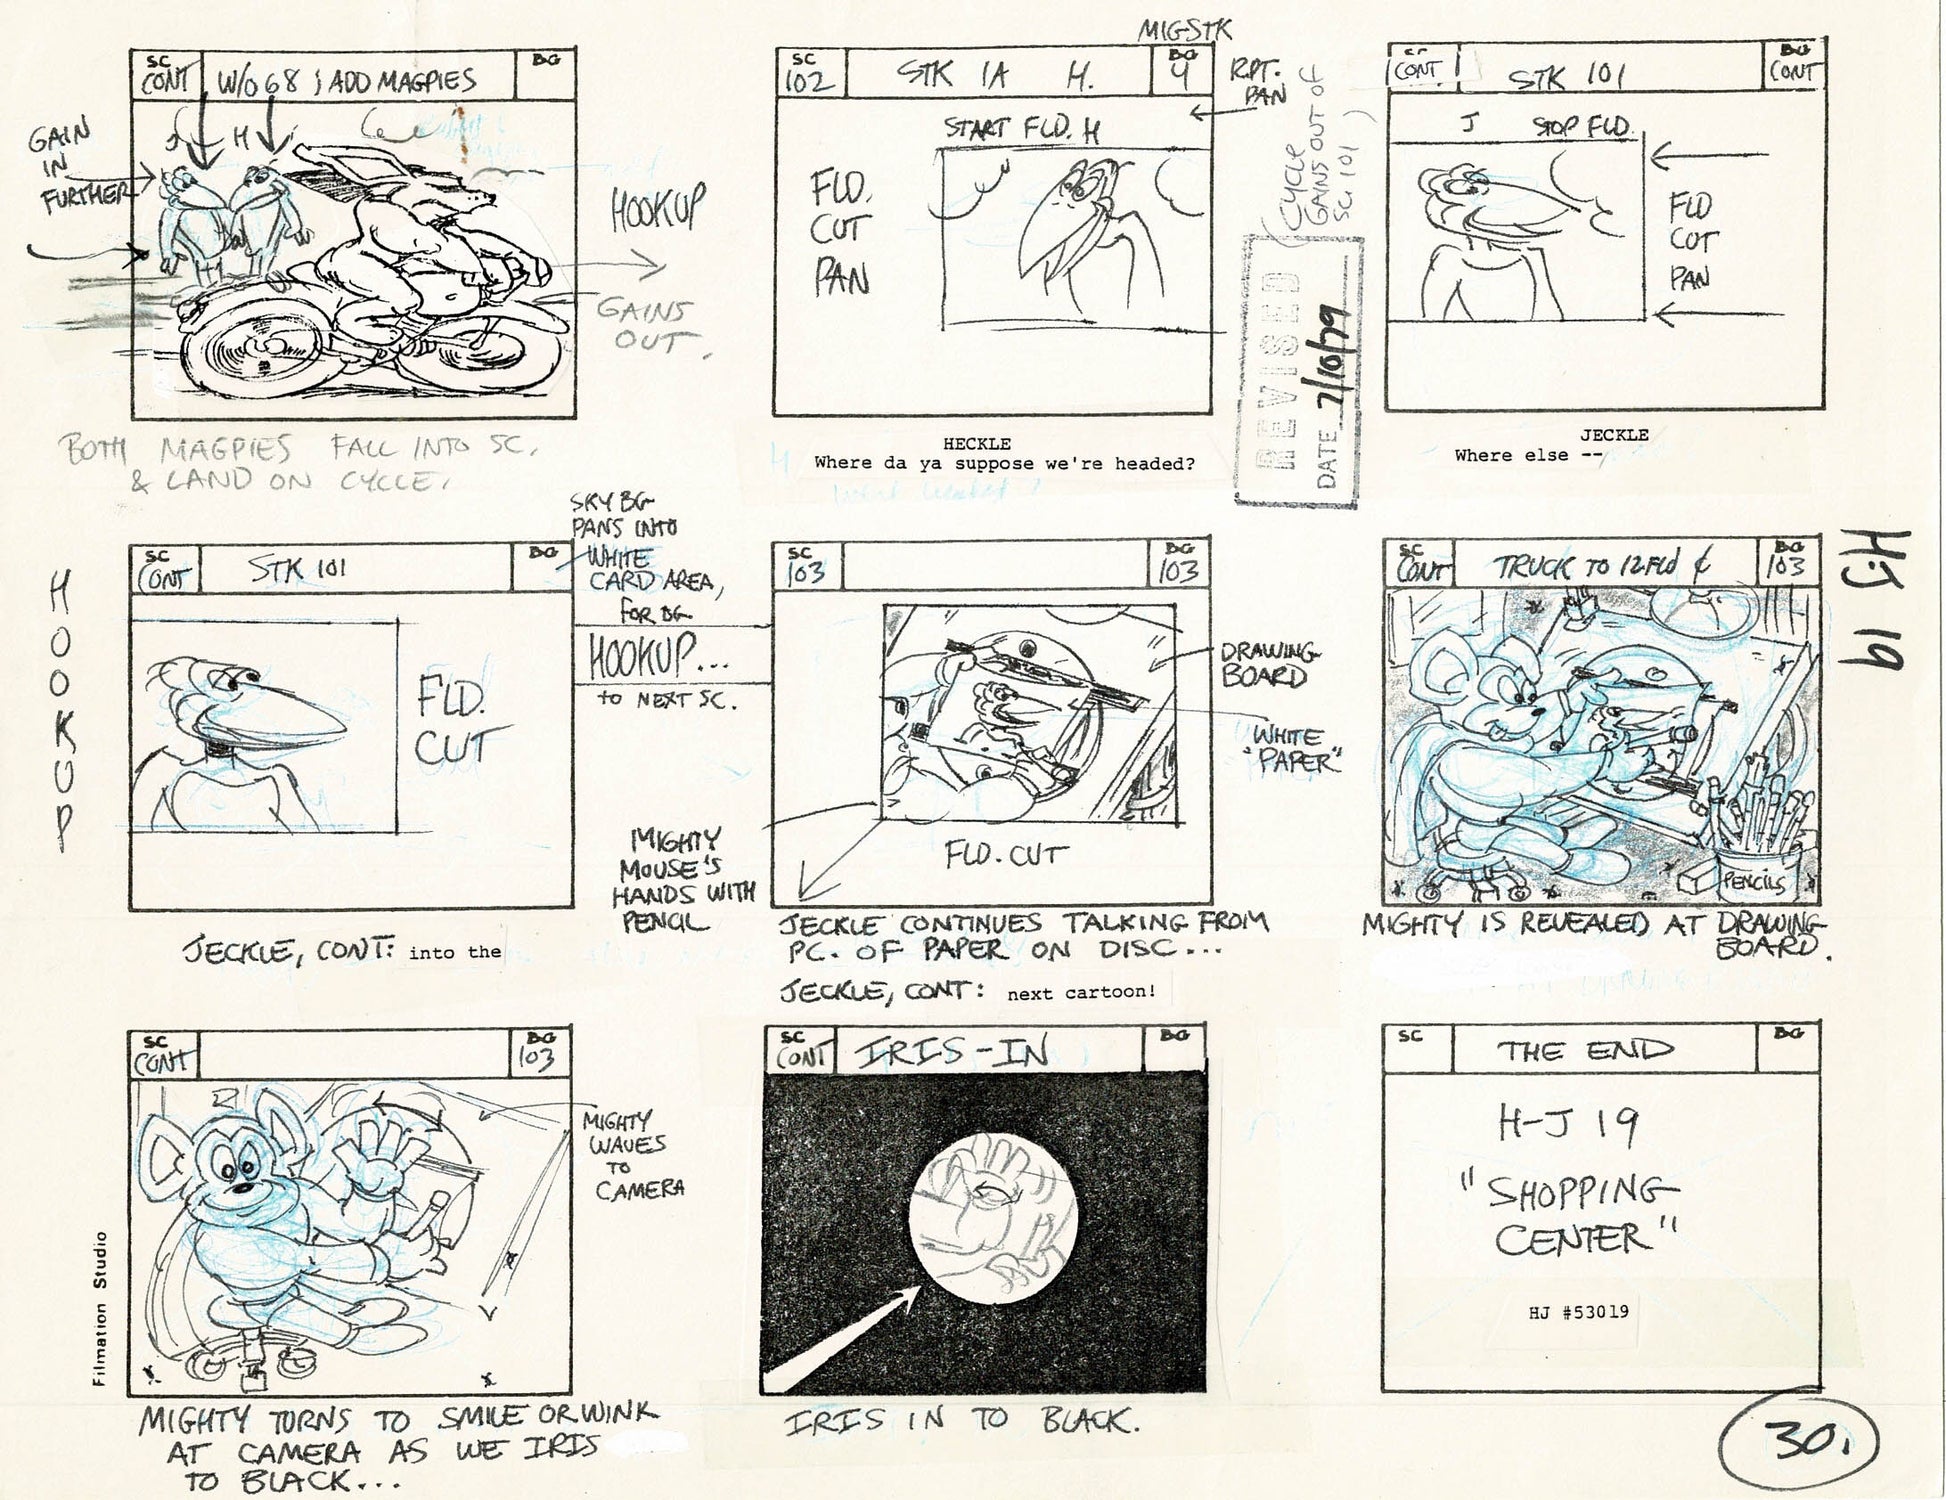 SC
CONT
W/O 68 ; ADD MAGPIES
BG
J H
GAIN
IN
FURTHER
HOOKUP
GAINS
OUT.
BOTH MAGPIES FALL INTO SC.
& LAND ON CYCLE.
MIG-STK
SC
102
STK 1A H.
BG
4
RPT.
PAN
START FLD. H
FLD.
CUT
PAN
(CYCLE
GAINS OUT OF
SC 101)
REVISED
DATE 7/10/79
HECKLE
Where da ya suppose we're headed?
CONT
STK 101
BG
CONT
J STOP FLD.
FLD
CUT
PAN
JECKLE
Where else --
HOOKUP
SC
CONT
STK 101
BG
FLD.
CUT
JECKLE, CONT: into the
SKY BG
PANS INTO
WHITE
CARD AREA,
FOR BG
HOOKUP...
TO NEXT SC.
SC
103
BG
103
DRAWING
BOARD
WHITE
"PAPER"
MIGHTY
MOUSE'S
HANDS WITH
PENCIL
FLD. CUT
JECKLE CONTINUES TALKING FROM
PC. OF PAPER ON DISC...
JECKLE, CONT: next cartoon!
SC
CONT
TRUCK TO 12 FLD ¢
BG
103
PENCILS
MIGHTY IS REVEALED AT DRAWING
BOARD.
H-J 19
SC
CONT
BG
103
MIGHTY
WAVES
TO
CAMERA
Filmation Studio
MIGHTY TURNS TO SMILE OR WINK
AT CAMERA AS WE IRIS
TO BLACK...
SC
CONT
IRIS-IN
BG
IRIS IN TO BLACK.
SC
THE END
BG
H-J 19
"SHOPPING
CENTER"
HJ #53019
30.